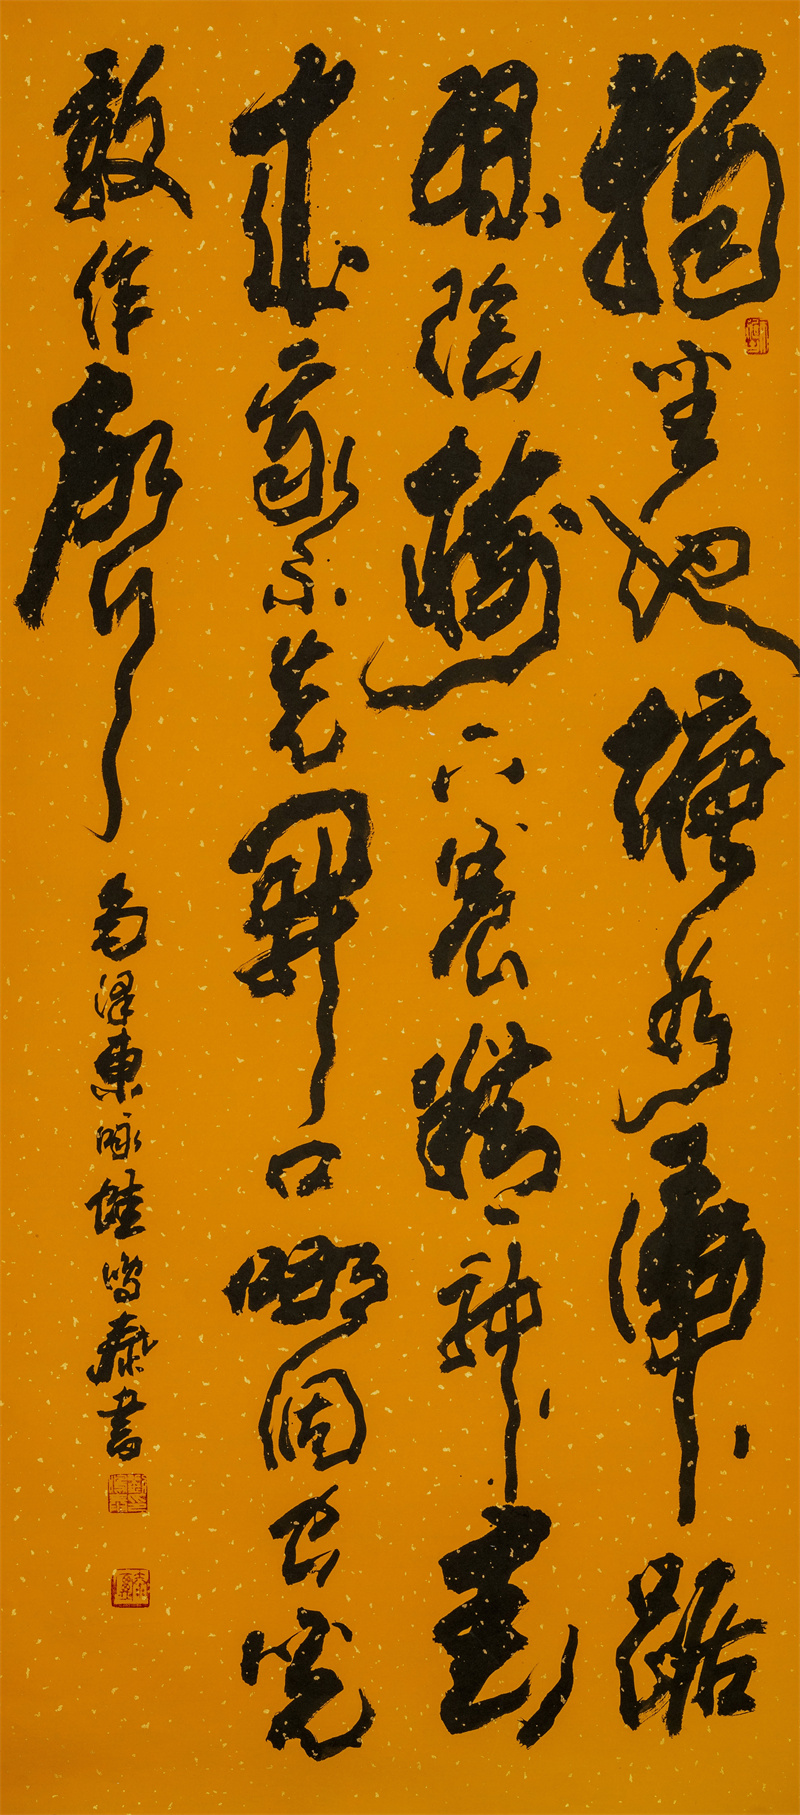 獨坐池塘如虎踞
綠陰樹下養精神春
來我不先開口哪個虫兒
敢作聲 毛泽東咏蛙 泰書